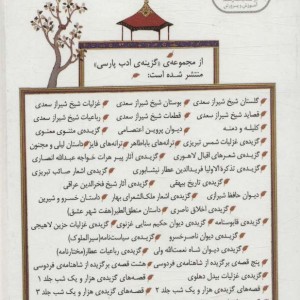 از مجموعه‌ی «گزینه‌ی ادب پارسی»
منتشر شده است:
گلستان شیخ شیراز سعدی بوستان شیخ شیراز سعدی غزلیات شیخ شیراز سعدی
قصاید شیخ شیراز سعدی قطعات شیخ شیراز سعدی رباعیات شیخ شیراز سعدی
کلیله و دمنه دیوان پروین اعتصامی گزیده‌ی مثنوی معنوی
گزیده‌ی غزلیات شمس تبریزی ترانه‌های باباطاهر ترانه‌های فایز داستان لیلی و مجنون
گزیده‌ی شعرهای اقبال لاهوری گزیده‌ی آثار پیر هرات خواجه عبدالله انصاری
گزیده‌ی تذکرة‌الاولیا فریدالدین عطار نیشابوری گزیده‌ی اشعار صائب تبریزی
گزیده‌ی تاریخ بیهقی گزیده‌ی آثار شیخ فخرالدین عراقی
دیوان حافظ شیرازی گزیده‌ی اشعار ملک‌الشعرای بهار داستان خسرو و شیرین
گزیده‌ی اخلاق ناصری داستان منطق‌الطیر (هفت شهر عشق)
گزیده‌ی قابوسنامه گزیده‌ی دیوان حکیم سنایی غزنوی گزیده‌ی غزلیات حزین لاهیجی
گزیده‌ی دیوان ناصرخسرو گزیده‌ی سیاست‌نامه (سیرالملوک)
گزیده‌ی دیوان شاه نعمت‌الله ولی گزیده‌ی رباعیات عطار (مختارنامه)
پنج قصه‌ی برگزیده از شاهنامه‌ی فردوسی هشت قصه‌ی برگزیده از شاهنامه‌ی فردوسی
گزیده‌ی غزلیات بیدل دهلوی قصه‌های گزیده‌ی هزار و یک شب جلد ۱
قصه‌های گزیده‌ی هزار و یک شب جلد ۲ قصه‌های گزیده‌ی هزار و یک شب جلد ۳